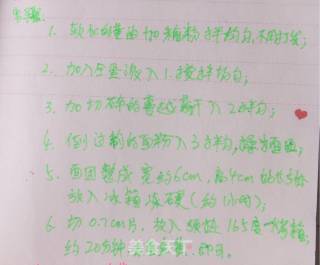 步骤:
1. 软化的黄油加糖粉拌均匀,不用打发;
2. 加入全蛋液入1.搅拌均匀;
3. 加切碎的蔓越莓干入2拌匀;
4. 倒过筛的面粉入3拌均,揉为面团;
5. 面团整成宽约6cm,高4cm的长方形
放入冰箱冻硬(约1小时);
6. 切0.7cm片,放入预热165度 烤箱,
约20分钟 即可。
美食天下